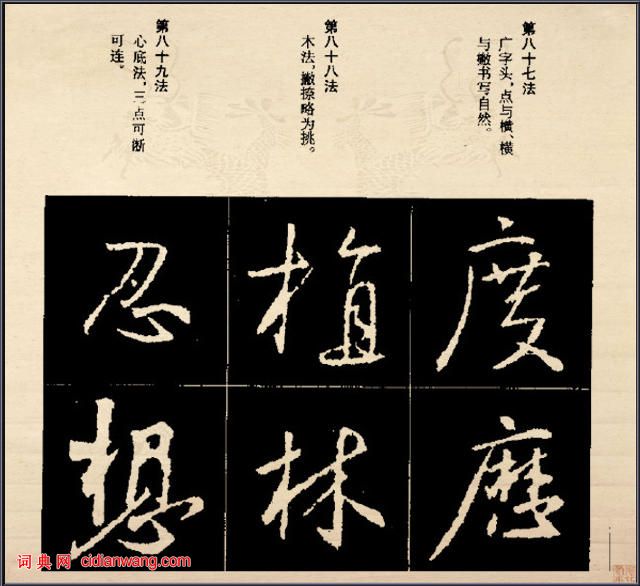 第八十七法
广字头，点与横、横
与撇书写自然。
第八十八法
木法，撇捺略为挑。
第八十九法
心底法，三点可断
可连。
度 植 忍
磨 林 想
词典网 cidianwang.com